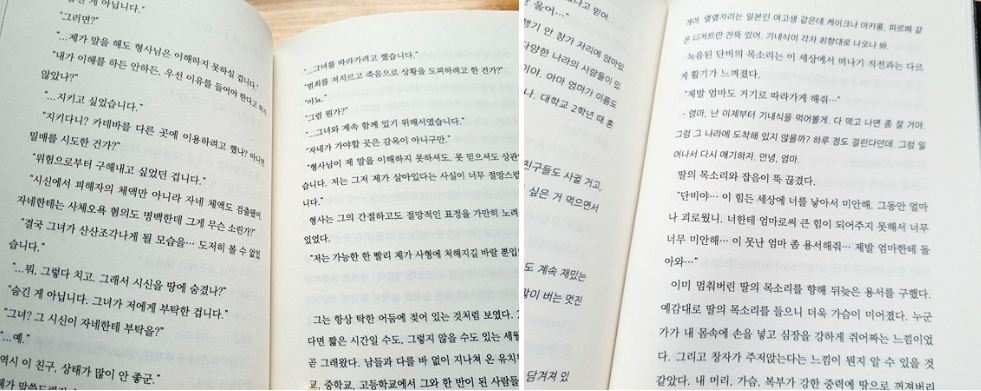 게 아닙니다."
"그러면?"
"…제가 말을 해도 형사님은 이해하지 못하실 겁니다."
"내가 이해를 하든 안하든, 우선 이유를 들어야 한다고 하지
않았나?"
"…지키고 싶었습니다."
"지키다니? 카데바를 다른 곳에 이용하려고 했나? 아니면
밀매를 시도한 건가?"
"위험으로부터 구해내고 싶었던 겁니다."
"시신에서 피해자의 체액만 아니라 자네 체액도 검출됐어.
자네한테는 사체오욕 혐의도 명백한데 그게 무슨 소린가?"
"결국 그녀가 산산조각나게 될 모습을… 도저히 볼 수 없었
습니다."
"…뭐, 그렇다 치고, 그래서 시신을 땅에 숨겼나?"
"숨긴 게 아닙니다. 그녀가 저에게 부탁한 겁니다."
"그녀? 그 시신이 자네한테 부탁을?"
"…예."
역시 이 친구, 상태가 많이 안 좋군."
"…그녀를 따라가려고 했습니다."
"범죄를 저지르고 죽음으로 상황을 도피하려고 한 건가?"
"아뇨."
"그럼 뭔가?"
"…그녀와 계속 함께 있기 위해서였습니다."
"자네가 가야할 곳은 감옥이 아니구만."
"형사님이 제 말을 이해하지 못하셔도, 못 믿으셔도 상관
습니다. 저는 그저 제가 살아있다는 사실이 너무 절망스럽
니다."
형사는 그의 간절하고도 절망적인 표정을 가만히 노려
있었다.
"저는 가능한 한 빨리 제가 사형에 처해지길 바랄 뿐입
그는 항상 탁한 어둠에 젖어 있는 것처럼 보였다. 2
다면 짧은 시간일 수도, 그렇지 않을 수도 있는 세월
곧 그래왔다. 남들과 다를 바 없이 지나쳐 온 유치
교, 중학교, 고등학교에서 그와 한 반이 된 사람들
고 믿어.
울어…"
행기 안 창가 자리에 앉아있
다양한 나라의 사람들이 있
이야. 아마 엄마가 이름도
나. 대학교 2학년 때 혼
친구들도 사귈 거고,
싶은 거 먹으면서
도 계속 재밌는
많이 버는 멋진
담겨져 있
거야. 옆옆자리는 일본인 여고생 같은데 케이크나 마카롱, 파르페 같
은 디저트만 잔뜩 있어. 기내식이 각자 취향대로 나오나 봐.
녹음된 단비의 목소리는 이 세상에서 떠나기 직전과는 다르
게 활기가 느껴졌다.
"제발 엄마도 거기로 따라가게 해줘…"
- 엄마, 난 이제부터 기내식을 먹어볼게. 다 먹고 나면 좀 잘 거야.
그럼 그 나라에 도착해 있지 않을까? 하루 정도 걸린다던데. 그럼 일
어나서 다시 얘기하자. 안녕, 엄마.
딸의 목소리와 잡음이 뚝 끊겼다.
"단비야… 이 힘든 세상에 너를 낳아서 미안해. 그동안 얼마
나 괴로웠니, 너한테 엄마로써 큰 힘이 되어주지 못해서 너무
너무 미안해… 이 못난 엄마 좀 용서해줘… 제발 엄마한테 돌
아와…"
이미 멈춰버린 딸의 목소리를 향해 뒤늦은 용서를 구했다.
예감대로 딸의 목소리를 들으니 더욱 가슴이 미어졌다. 누군
가가 내 몸속에 손을 넣고 심장을 강하게 쥐어짜는 느낌이었
다. 그리고 창자가 주저앉는다는 느낌이 뭔지 알 수 있을 것
같았다. 내 머리, 가슴, 복부가 강한 중력에 땅으로 꺼져버린